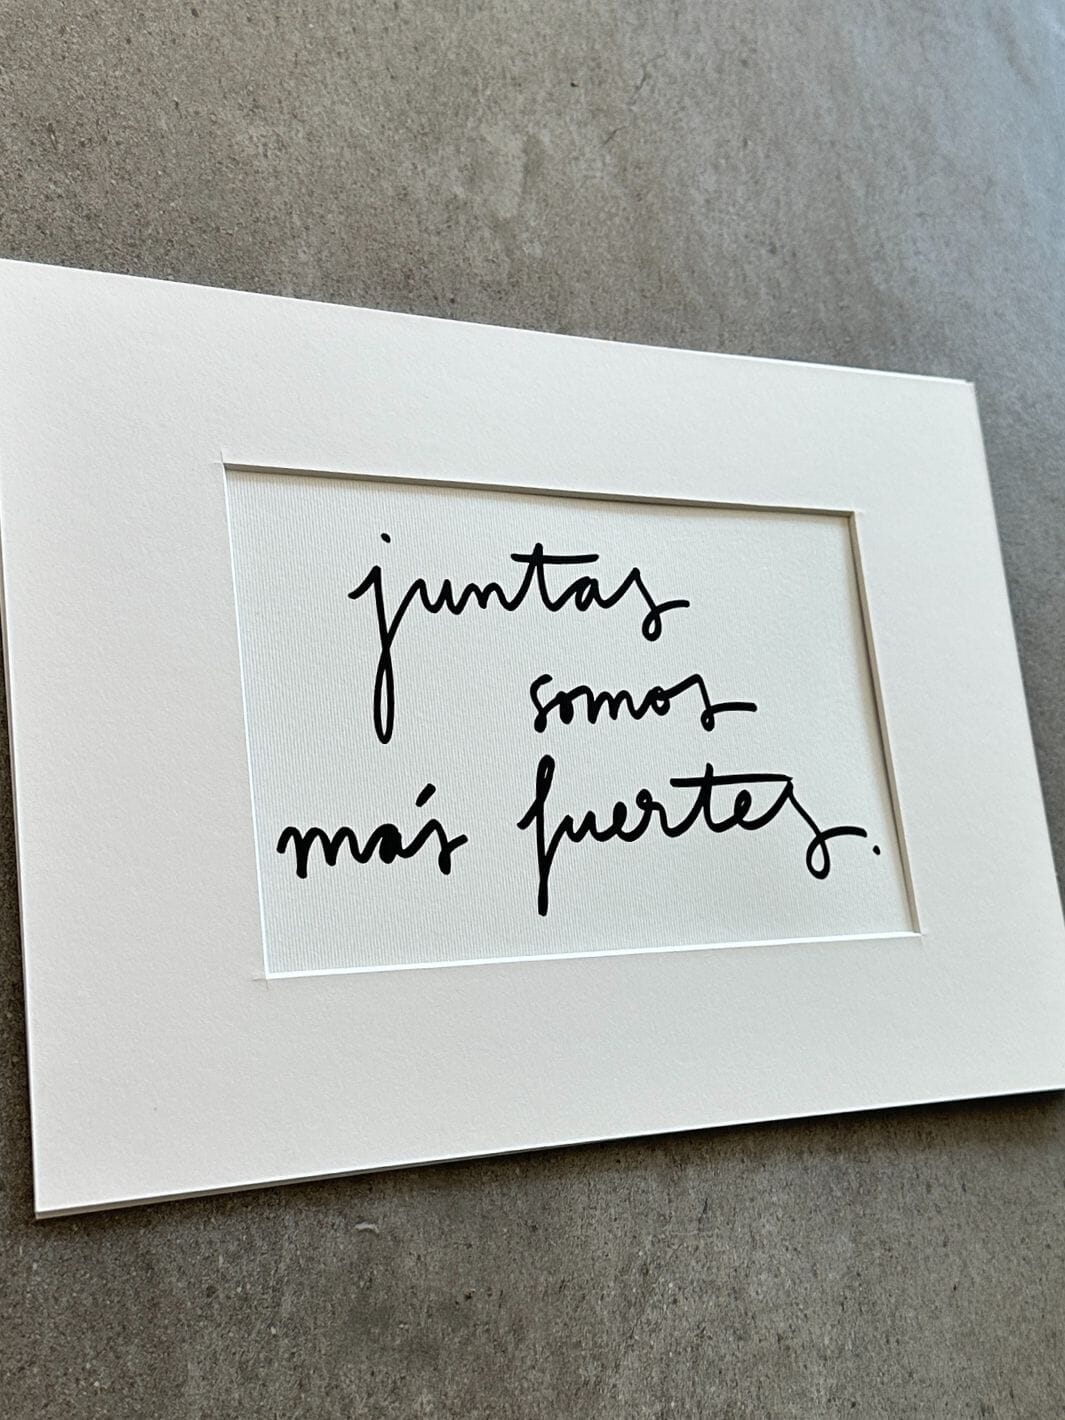 juntas
somos
más fuertes.